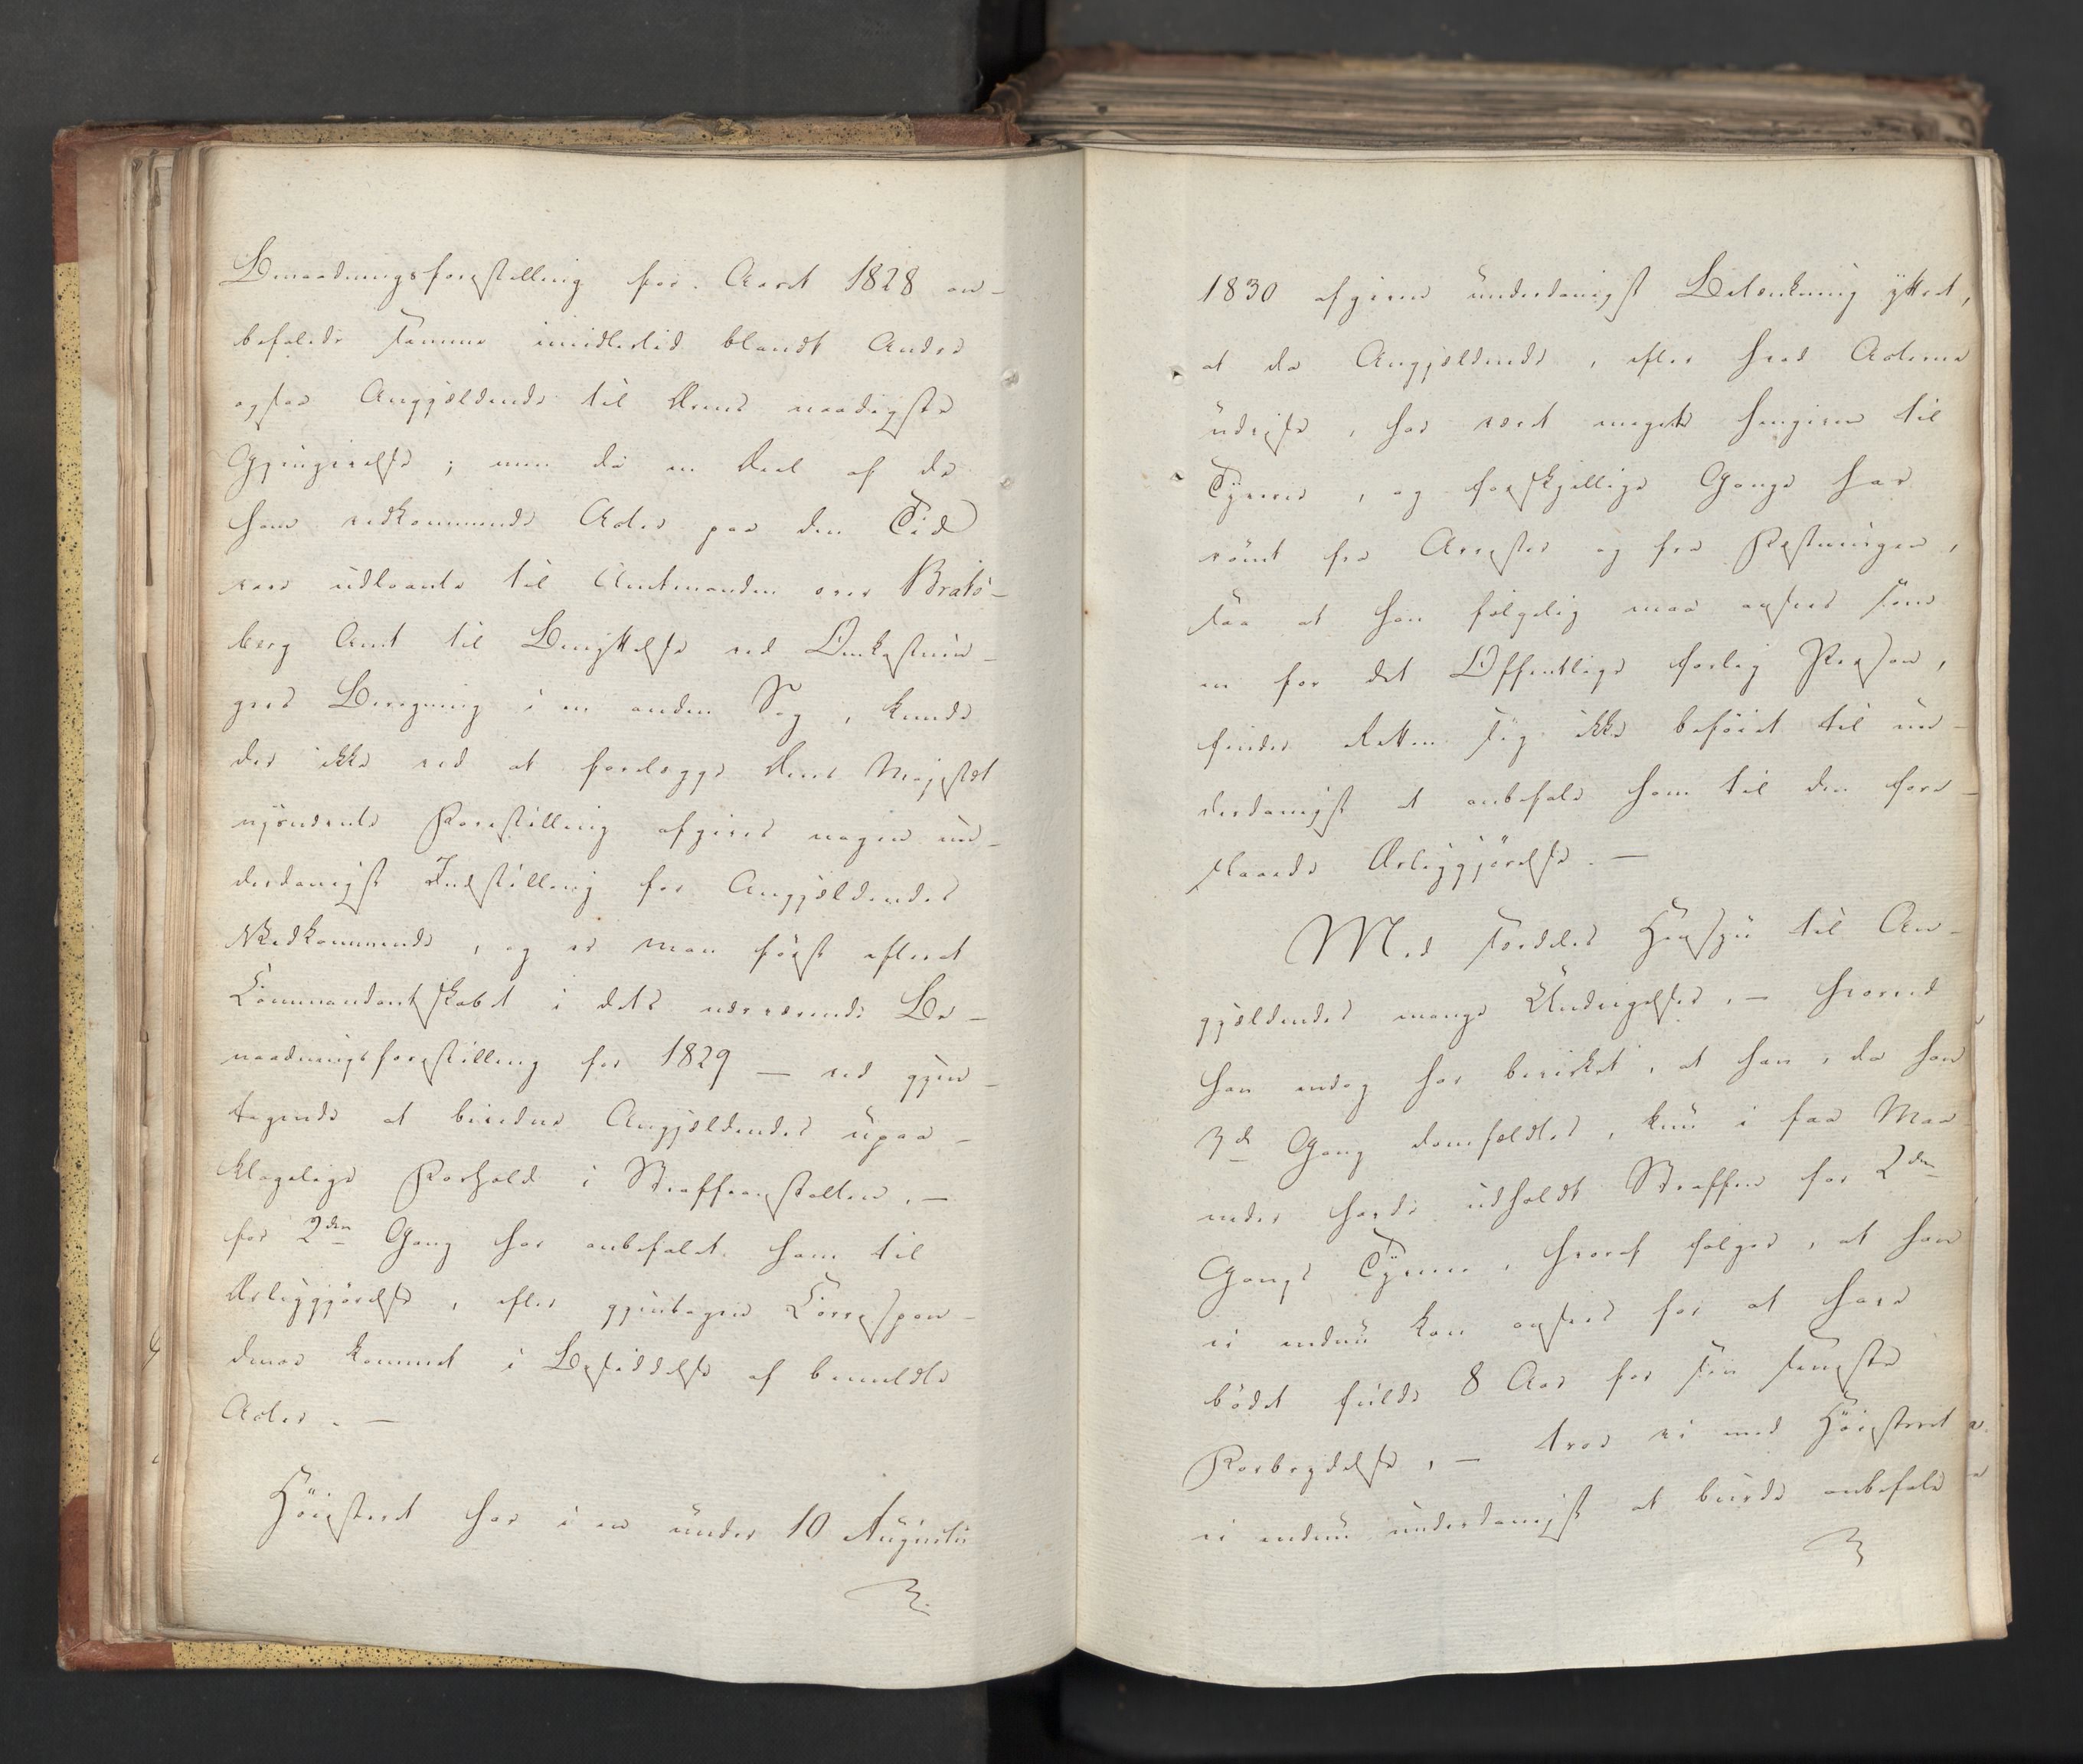 Benaadningsforestilling for Aaret 1828 an-
befalede samme imidlertid blandt Andre
ogsaa Angjældende til Deres naadigste
Gjengivelse; men da en Deel af de
ham vedkommende Acter paa den Tid
vare udlaante til Amtmanden over Brats-
berg Amt til Benyttelse ved Omkostnin-
gers Beregning i en anden Sag, kunde
der ikke ved at forelægge Deres Majestæt
nysnævnte Forestilling afgives nogen un-
derdanigst Indstilling for Angjældendes
Vedkommende, og er man først efterat
Commandantskabet i dets nærværende Be-
naadningsforestilling for 1829 — ved gjen-
tagende at bevidne Angjældendes upaa-
klagelige Forhold i Straffeanstalten, —
for 2den Gang har anbefalet ham til
Løsliggjørelse, efter gjentagen Correspon-
dence kommet i Besiddelse af bemeldte
Acter. —
Høiesteret har i en under 10 Augusti
1830 afgiven underdanigst Betænkning yttret,
at da Angjældende, efter hvad Acterne
udvise, har været meget hengiven til
Tyverie, og forskjellige Gange har
rømt fra Arrester og fra Fæstningen,
saa at han følgelig maa ansees som
en for det Offentlige farlig Person,
finder Retten sig ikke beføiet til un-
derdanigst at anbefale ham til den fore-
slaaede Løsliggjørelse. —
Med særdeles Hensyn til An-
gjældendes mange Undvigelser, — hvorved
han endog har bevirket, at han, da han
3de Gang domfældtes, kun i faa Maa-
neder havde udholdt Straffen for 2den
Gangs Tyverie, hvoraf følger, at han
ei endnu kan ansees for at have
bødet fulde 8 Aar for sin seneste
Forbrydelse, — troe vi med Høiesteret
ei endnu underdanigst at burde anbefale